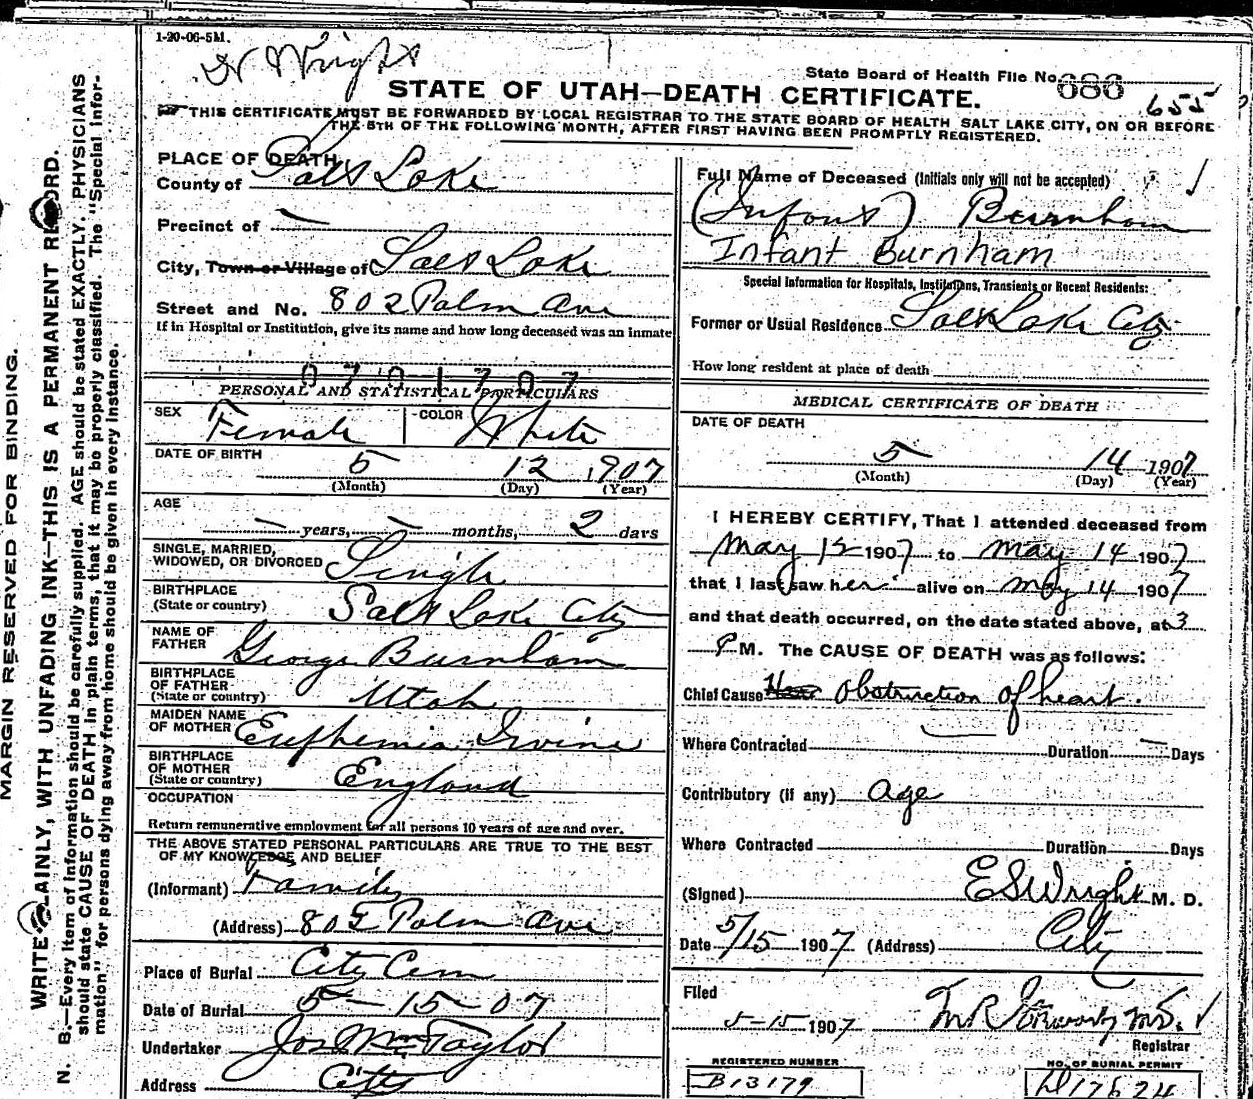 1-20-06-5M.
Dr Wright
State Board of Health File No. 655
STATE OF UTAH—DEATH CERTIFICATE.
THIS CERTIFICATE MUST BE FORWARDED BY LOCAL REGISTRAR TO THE STATE BOARD OF HEALTH SALT LAKE CITY, ON OR BEFORE
THE 5TH OF THE FOLLOWING MONTH, AFTER FIRST HAVING BEEN PROMPTLY REGISTERED.
PLACE OF DEATH
County of Salt Lake
Precinct of —
City, Town or Village of Salt Lake
Street and No. 802 Palm Ave
If in Hospital or Institution, give its name and how long deceased was an inmate
0701707
PERSONAL AND STATISTICAL PARTICULARS
SEX Female COLOR White
DATE OF BIRTH 5 12 1907
(Month) (Day) (Year)
AGE
— years, — months, 2 days
SINGLE, MARRIED,
WIDOWED, OR DIVORCED Single
BIRTHPLACE
(State or country) Salt Lake City
NAME OF
FATHER George Burnham
BIRTHPLACE
OF FATHER
(State or country) Utah
MAIDEN NAME
OF MOTHER Euphemia Irvine
BIRTHPLACE
OF MOTHER
(State or country) England
OCCUPATION
Return remunerative employment for all persons 10 years of age and over.
THE ABOVE STATED PERSONAL PARTICULARS ARE TRUE TO THE BEST
OF MY KNOWLEDGE AND BELIEF
(Informant) Family
(Address) Palm Ave
Place of Burial City Cem
Date of Burial 5-15-07
Undertaker Jos Wm Taylor
Address City
Full Name of Deceased (Initials only will not be accepted)
(Infant) Burnham
Infant Burnham
Special Information for Hospitals, Institutions, Transients or Recent Residents:
Former or Usual Residence Salt Lake City
How long resident at place of death
MEDICAL CERTIFICATE OF DEATH
DATE OF DEATH
5 14 1907
(Month) (Day) (Year)
I HEREBY CERTIFY, That I attended deceased from
May 12 1907 to May 14 1907
that I last saw her alive on May 14 1907
and that death occurred, on the date stated above, at 3
P M. The CAUSE OF DEATH was as follows:
Chief Cause Obstruction of heart.
Where Contracted Duration — Days
Contributory (if any) Age
Where Contracted Duration Days
(Signed) E S Wright M. D.
Date 5/15 1907 (Address) City
Filed
5-15-1907
Registrar
REGISTERED NUMBER
B13179
NO. OF BURIAL PERMIT
MARGIN RESERVED FOR BINDING.
WRITE PLAINLY, WITH UNFADING INK—THIS IS A PERMANENT RECORD.
N. B.—Every item of information should be carefully supplied. AGE should be stated EXACTLY. PHYSICIANS
should state CAUSE OF DEATH in plain terms, that it may be properly classified. The "Special Infor-
mation" for persons dying away from home should be given in every instance.